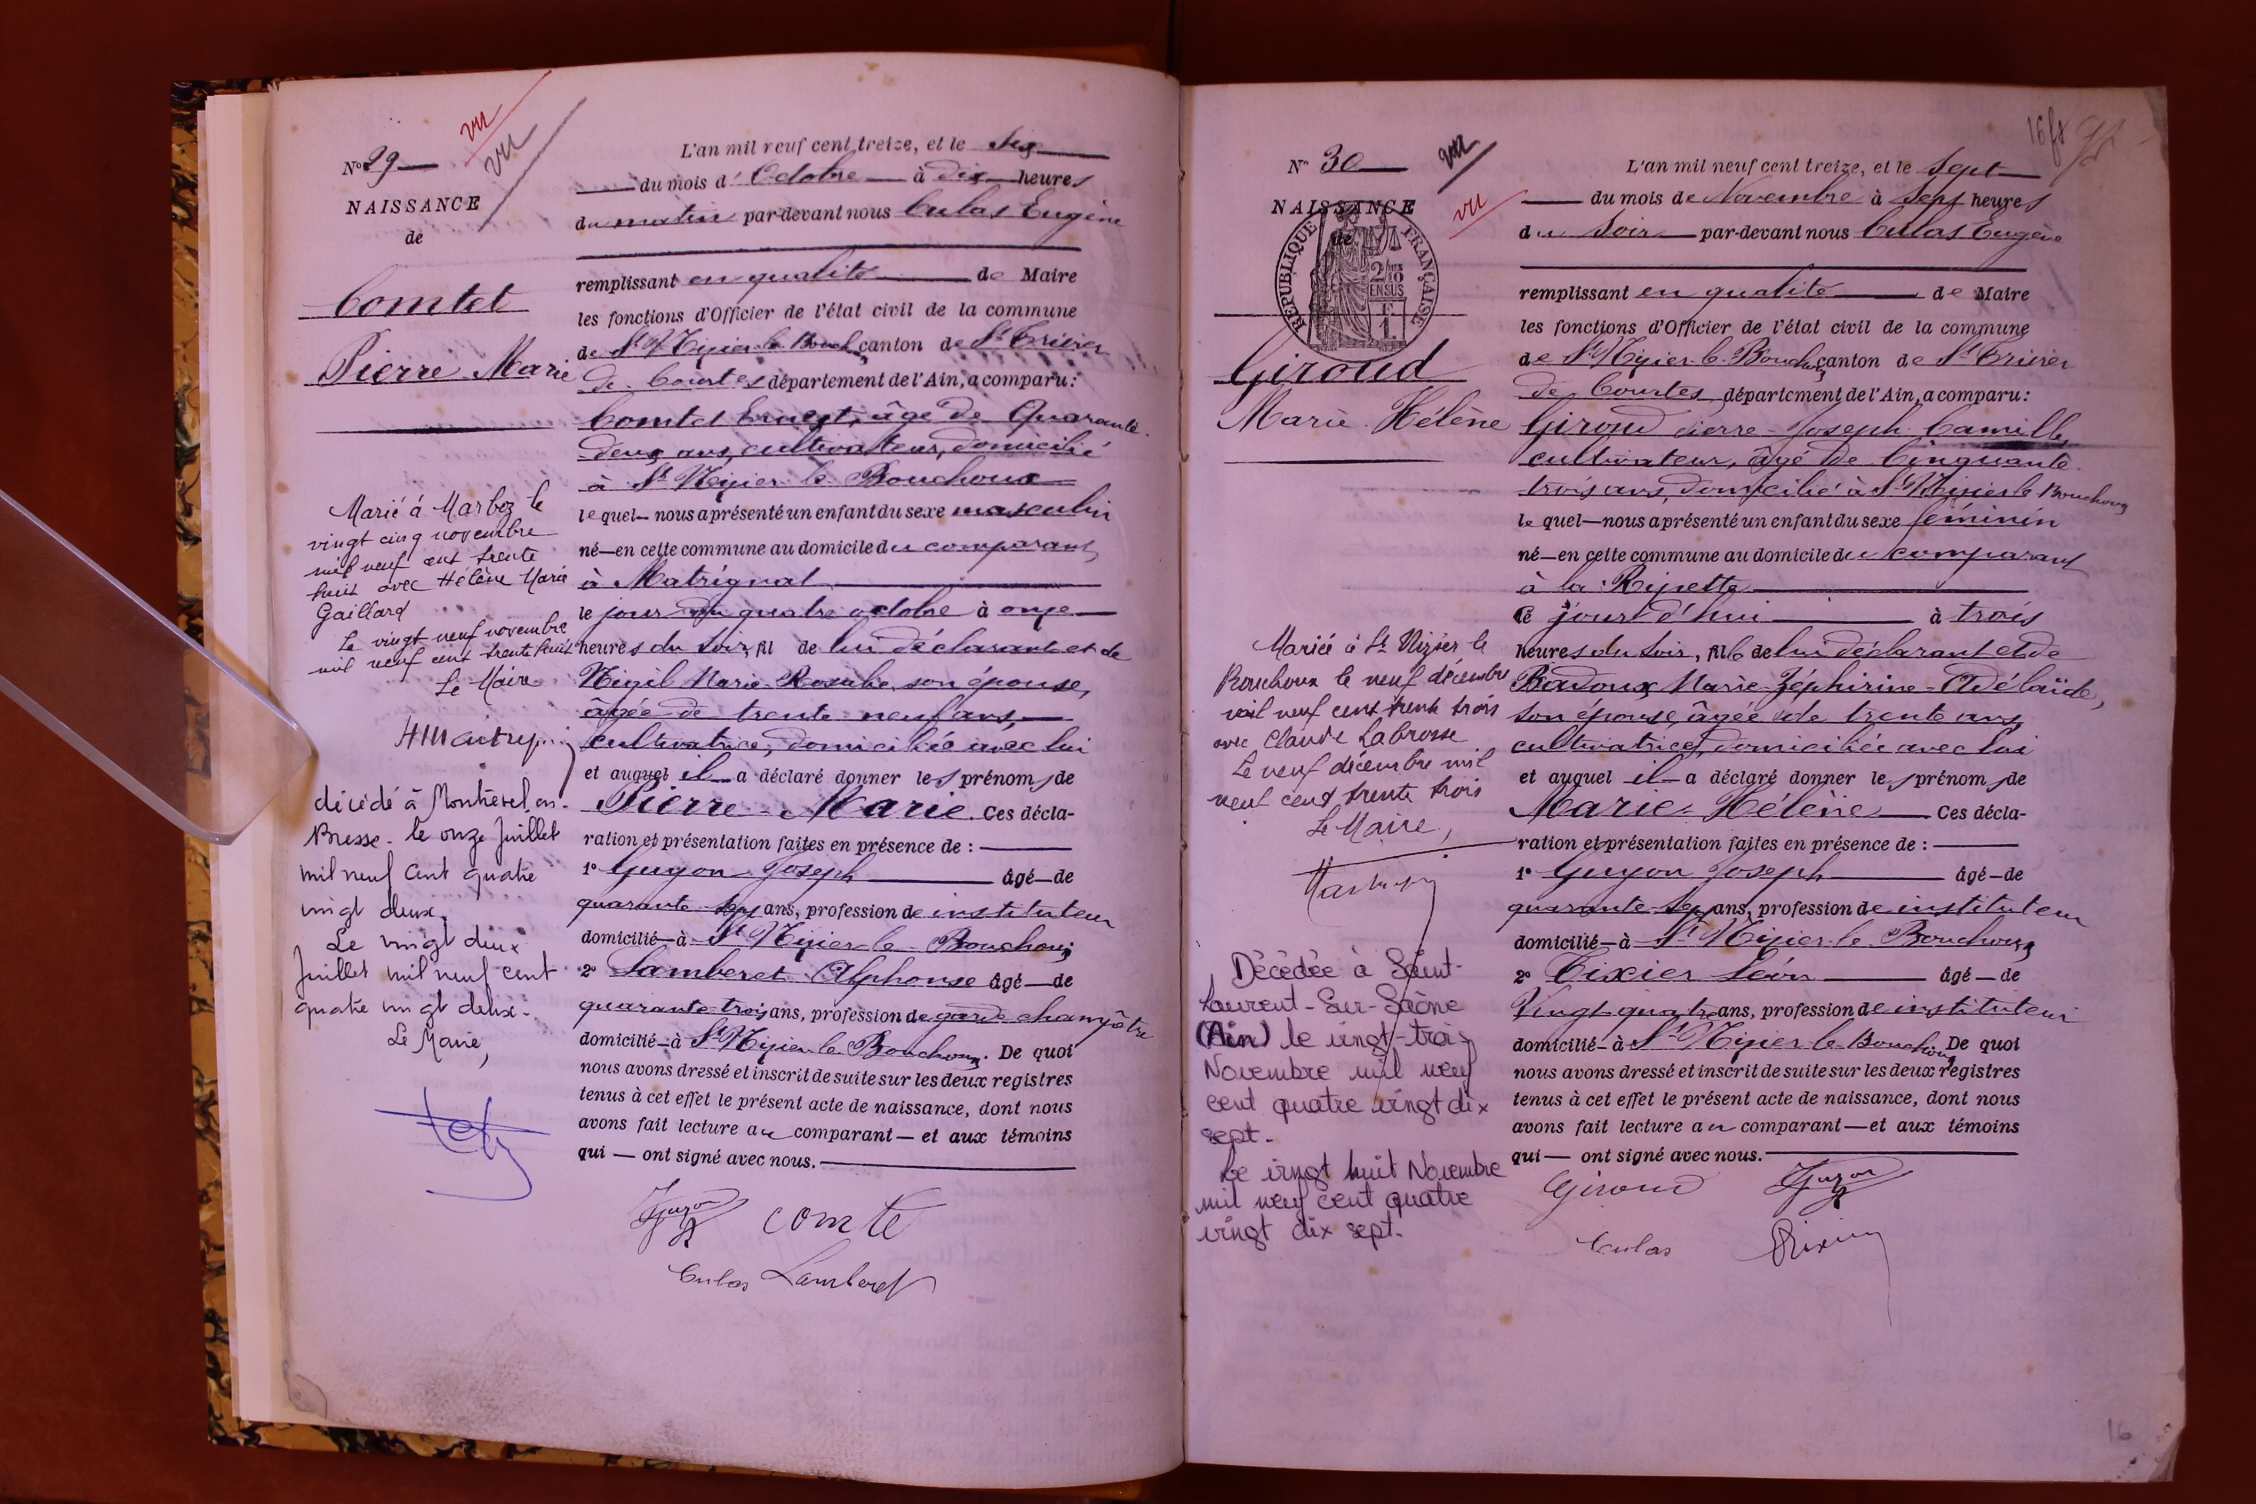 vu
vu
N° 29
NAISSANCE
de
Comtet
Pierre Marie
Marié à Marboz le
vingt cinq novembre
mil neuf cent trente
huit avec Hélène Marie
Gaillard
Le vingt neuf novembre
mil neuf cent trente huit
Le Maire
décédé à Montrevel en
Bresse - le onze Juillet
mil neuf cent quatre
vingt deux.
Le vingt deux
Juillet mil neuf cent
quatre vingt deux.
Le Maire,
L'an mil neuf cent treize, et le six
du mois d'Octobre à dix heures
du matin par-devant nous Culas Eugène
remplissant en qualité de Maire
les fonctions d'Officier de l'état civil de la commune
de St Nizier le Bouch canton de St Trivier
de Courtes département de l'Ain, a comparu:
Comtet Ernest, âgé de Quarante
deux ans, cultivateur, domicilié
à St Nizier le Bouchoux
lequel nous a présenté un enfant du sexe masculin
né en cette commune au domicile du comparant
à Matrignat
le jour du quatre octobre à onze
heures du soir, fil de lui déclarant et de
Nizil Marie Rosalie son épouse,
âgée de trente neuf ans,
cultivatrice, domiciliée avec lui
et auquel il a déclaré donner les prénoms de
Pierre-Marie. Ces décla-
ration et présentation faites en présence de :
1° Guyon Joseph âgé de
quarante sept ans, profession de instituteur
domicilié à St Nizier le Bouchoux
2° Lamberet Alphonse âgé de
quarante trois ans, profession de garde champêtre
domicilié à St Nizier le Bouchoux. De quoi
nous avons dressé et inscrit de suite sur les deux registres
tenus à cet effet le présent acte de naissance, dont nous
avons fait lecture au comparant — et aux témoins
qui — ont signé avec nous.
Guyon comte
Culas Lamberet
16 f8
vu
vu
N° 30
NAISSANCE
de
RÉPUBLIQUE FRANÇAISE
2/10 EN SUS
1 F.
Giroud
Marie Hélène
Mariée à St Nizier le
Bouchoux le neuf décembre
mil neuf cent trente trois
avec Claude Labrosse
Le neuf décembre mil
neuf cent trente trois
Le Maire,
Décédée à Saint-
Laurent-Sur-Saône
(Ain) le vingt-trois
Novembre mil neuf
cent quatre vingt dix
sept.
Le vingt huit Novembre
mil neuf cent quatre
vingt dix sept.
L'an mil neuf cent treize, et le sept
du mois de Novembre à sept heures
du soir par-devant nous Culas Eugène
remplissant en qualité de Maire
les fonctions d'Officier de l'état civil de la commune
de St Nizier le Bouchoux canton de St Trivier
de Courtes, département de l'Ain, a comparu:
Giroud Pierre-Joseph Camille,
cultivateur, âgé de Cinquante
trois ans, domicilié à St Nizier le Bouchoux
lequel — nous a présenté un enfant du sexe féminin
né — en cette commune au domicile du comparant
à la Ripette
Ce jourd'hui à trois
heures du soir, fille de lui déclarant et de
Badoux Marie-Zéphirine-Adélaïde,
son épouse, âgée de trente ans,
cultivatrice, domiciliée avec lui
et auquel il a déclaré donner les prénoms de
Marie-Hélène Ces décla-
ration et présentation faites en présence de :
1° Guyon Joseph âgé — de
quarante sept ans, profession de instituteur
domicilié — à St Nizier le Bouchoux
2° Tixier Léon âgé — de
Vingt quatre ans, profession de instituteur
domicilié — à St Nizier le Bouchoux De quoi
nous avons dressé et inscrit de suite sur les deux registres
tenus à cet effet le présent acte de naissance, dont nous
avons fait lecture au comparant — et aux témoins
qui — ont signé avec nous.
Giroud Guyon
Culas Tixier
16